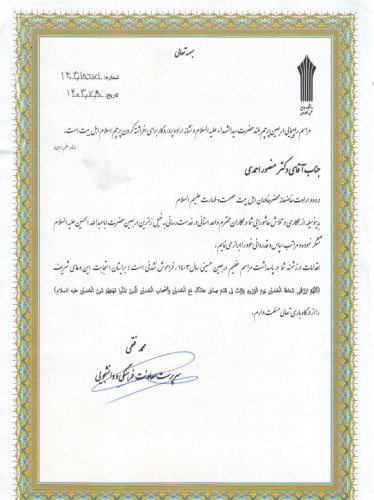 بسمه تعالی
شماره: ۱۴۰۳/۱۸۶۷۱
تاریخ: ۱۴۰۳/۷/۹
مراسم راهپیمایی اربعین پرچم بلند حضرت سیدالشهداء علیه السلام و نشانه اراده پروردگار برای افراشته کردن پرچم اسلام اهل بیت است.
جناب آقای دکتر منصور احمدی
درود و ارادت خاضعانه محضر خاندان اهل بیت عصمت و طهارت علیهم السلام
بدینوسیله از همکاری و تلاش عاشورایی شما و همکاران محترم واحد استانی در خدمت رسانی به خیل زائرین اربعین حضرت اباعبدالله الحسین علیه السلام
تشکر نموده و مراتب سپاس و قدردانی خود را ابراز می نمایم.
اقدامات ارزشمند شما در پاسداشت مراسم عظیم اربعین حسینی سال ۱۴۰۳، فراموش نشدنی است؛ برایتان استجابت این دعای شریف
(اللهم ارزقنی شفاعة الحسین یوم الورود وثبت لی قدم صدق عندک مع الحسین واصحاب الحسین الذین بذلوا مهجهم دون الحسین علیه السلام)
را از درگاه باری تعالی مسئلت دارم.
محمد فقهی
سرپرست معاونت فرهنگی و دانشجویی